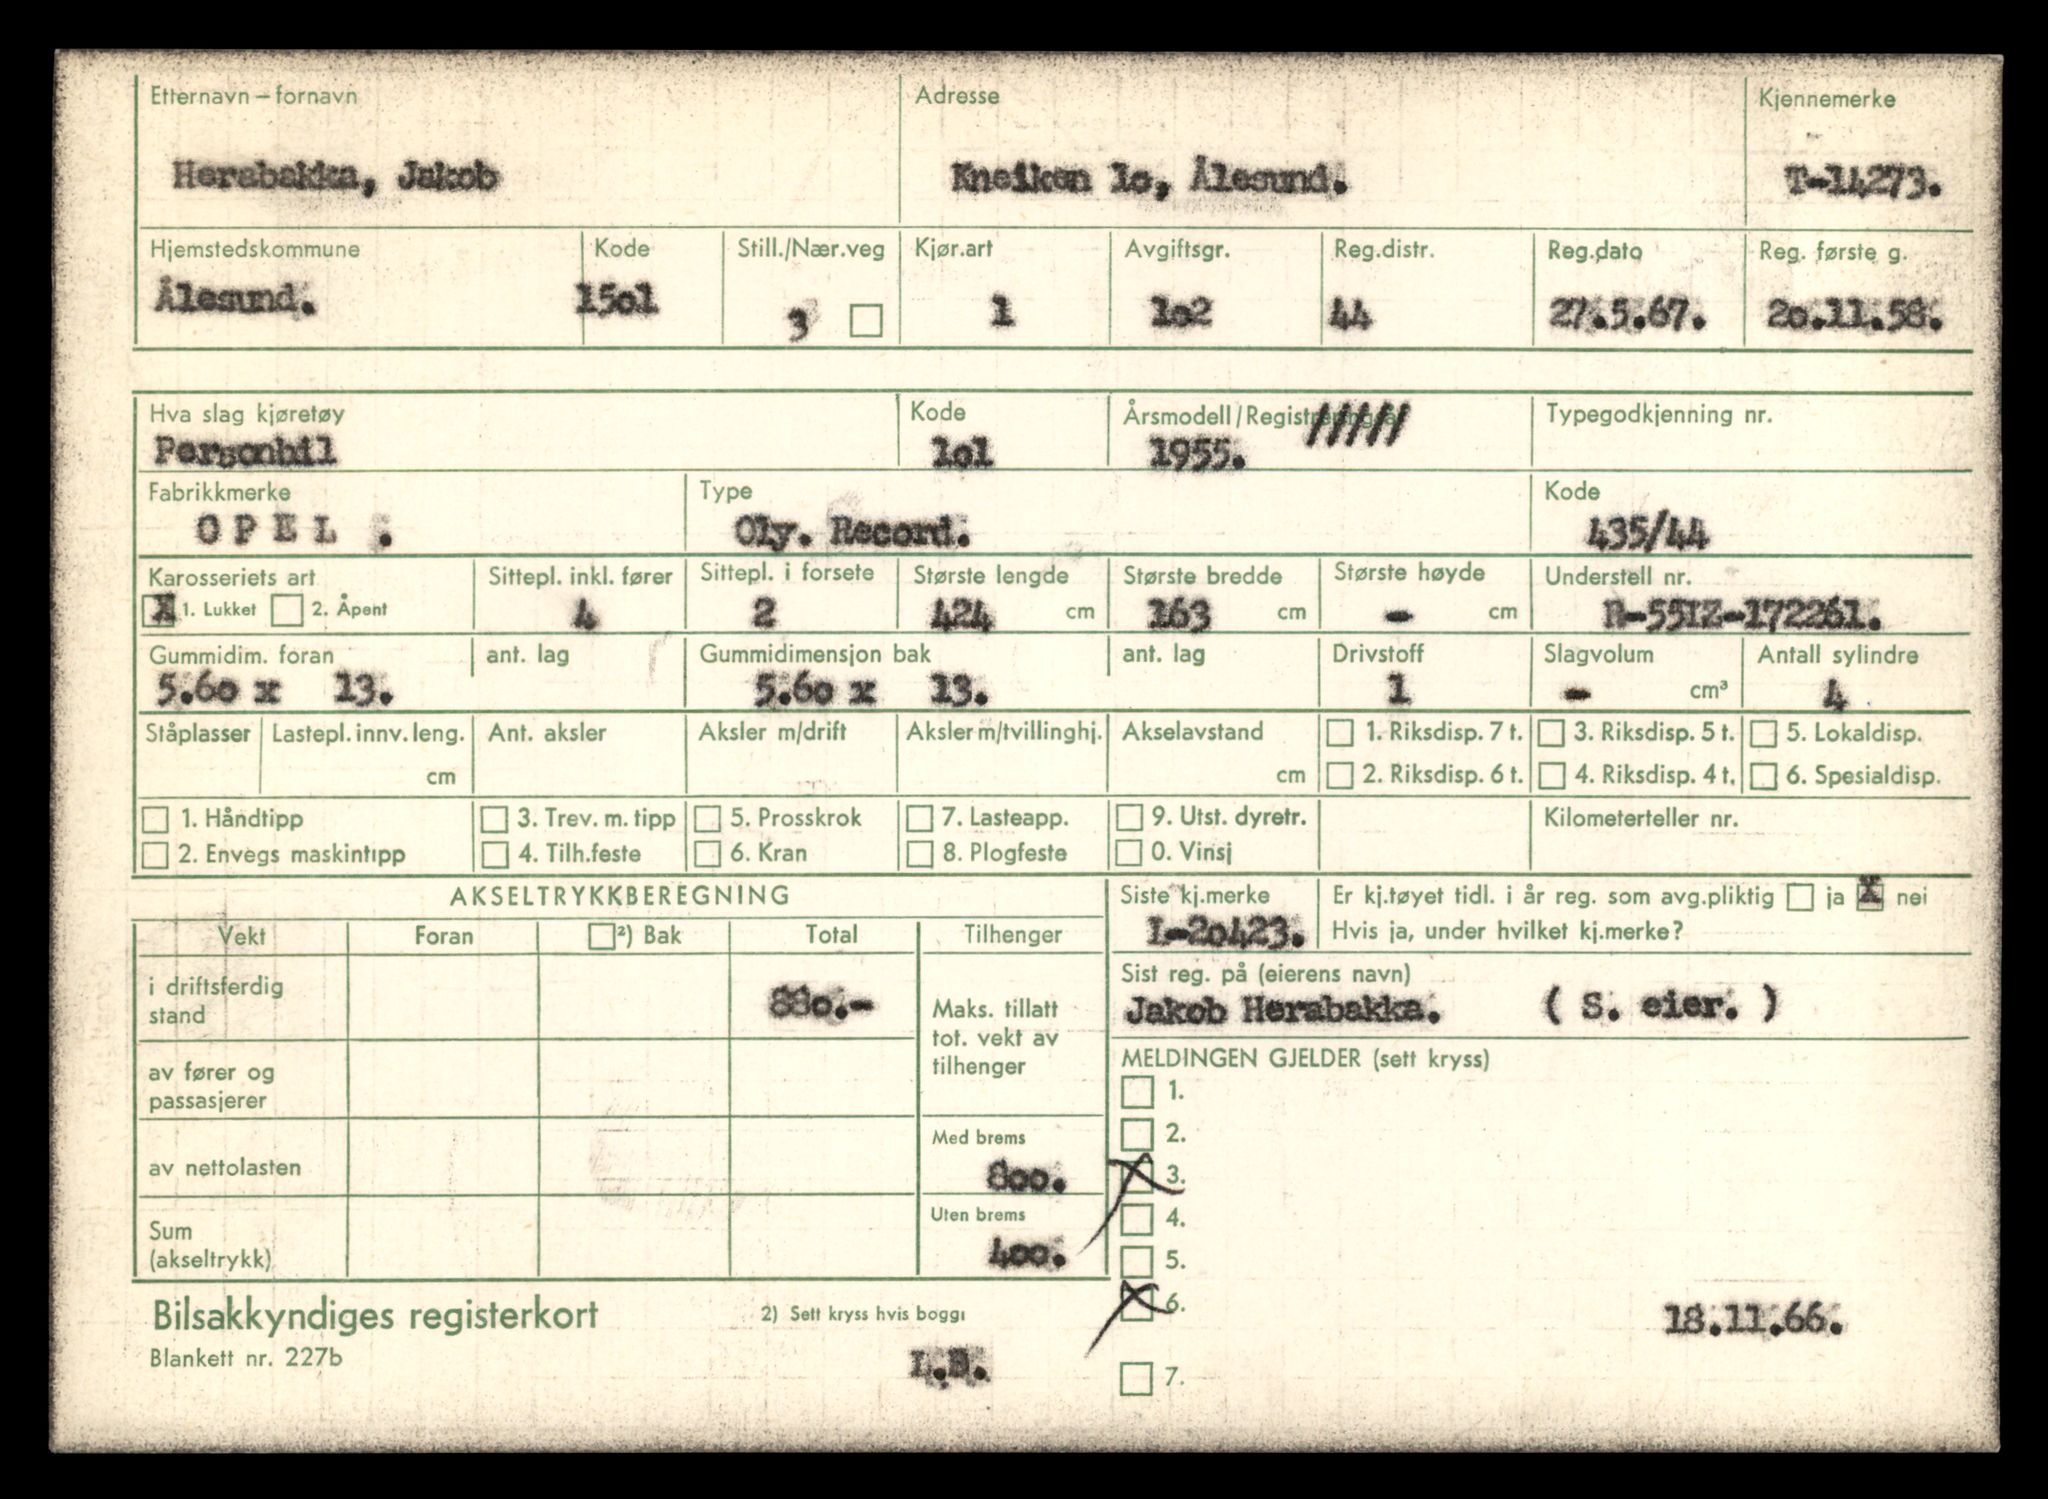 Etternavn – fornavn Adresse Kjennemerke
Herabakka, Jakob Kneiken 1o, Ålesund. T-14273.
Hjemstedskommune Kode Still./Nær.veg Kjør.art Avgiftsgr. Reg.distr. Reg.dato Reg. første g.
Ålesund. 15o1 3 1 1o2 44 27.5.67. 2o.11.58.
Hva slag kjøretøy Kode Årsmodell/Registreringsår ///// Typegodkjenning nr.
Personbil 1o1 1955.
Fabrikkmerke Type Kode
O P E L . Oly. Record. 435/44
Karosseriets art Sittepl. inkl. fører Sittepl. i forsete Største lengde Største bredde Største høyde Understell nr.
X 1. Lukket 2. Åpent 4 2 424 cm 163 cm - cm R-55IZ-172261.
Gummidim. foran ant. lag Gummidimensjon bak ant. lag Drivstoff Slagvolum Antall sylindre
5.6o x 13. 5.6o x 13. 1 - cm³ 4
Ståplasser Lastepl. innv. leng. Ant. aksler Aksler m/drift Aksler m/tvillinghj. Akselavstand 1. Riksdisp. 7 t. 3. Riksdisp. 5 t. 5. Lokaldisp.
cm cm 2. Riksdisp. 6 t. 4. Riksdisp. 4 t. 6. Spesialdisp.
1. Håndtipp 3. Trev. m. tipp 5. Prosskrok 7. Lasteapp. 9. Utst. dyretr. Kilometerteller nr.
2. Envegs maskintipp 4. Tilh.feste 6. Kran 8. Plogfeste 0. Vinsj
AKSELTRYKKBEREGNING Siste kj.merke Er kj.tøyet tidl. i år reg. som avg.pliktig ja X nei
Vekt Foran ²) Bak Total Tilhenger L-2o423. Hvis ja, under hvilket kj.merke?
i driftsferdig stand 88o.- Sist reg. på (eierens navn)
Maks. tillatt tot. vekt av tilhenger Jakob Herabakka. ( S. eier. )
av fører og passasjerer MELDINGEN GJELDER (sett kryss)
1.
av nettolasten Med brems 2.
8oo. X 3.
Sum (akseltrykk) Uten brems 4.
4oo. 5.
Bilsakkyndiges registerkort 2) Sett kryss hvis boggi X 6. 18.11.66.
Blankett nr. 227b L.B. 7.